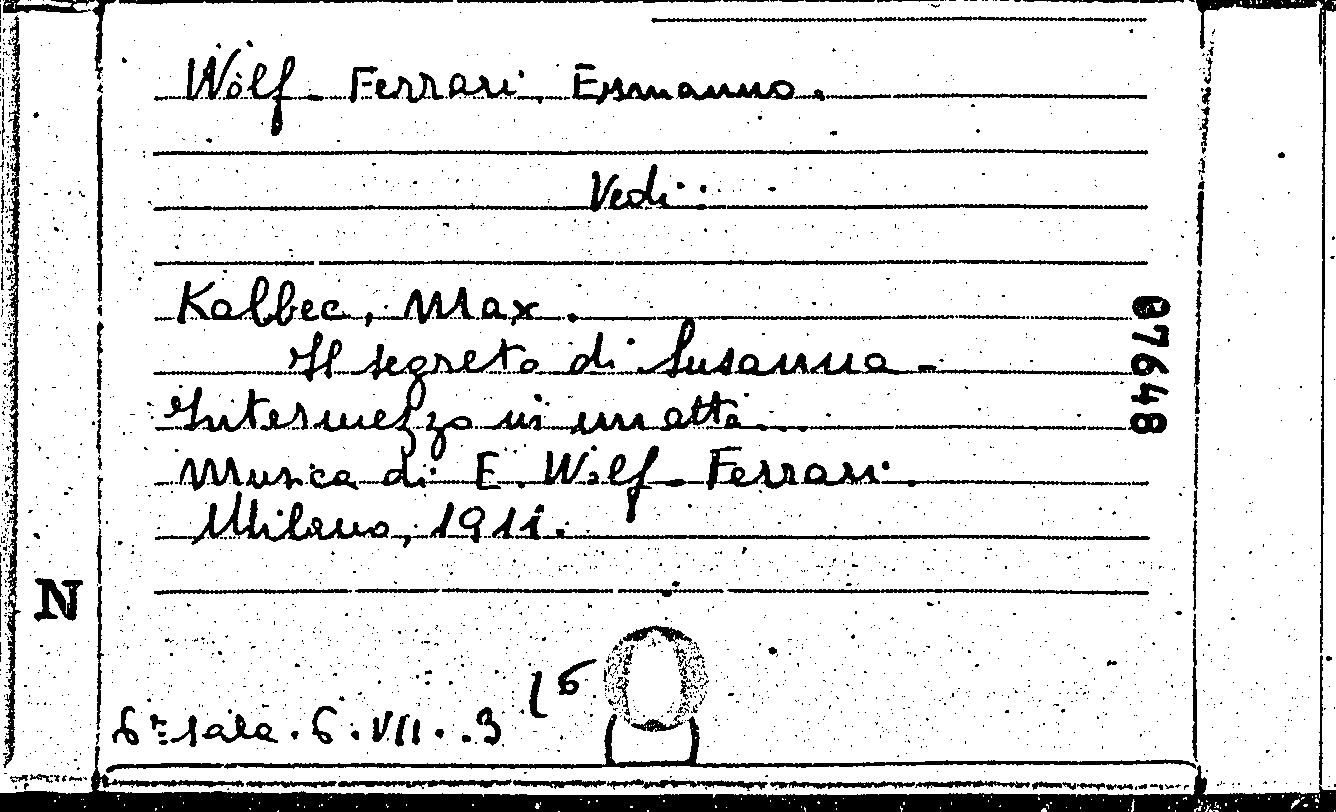 Wolf-Ferrari, Ermanno.
Vedi:
Kalbec, Max.
Il segreto di Susanna -
Intermezzo in un atto...
Musica di E. Wolf-Ferrari.
Milano, 1911.
07648
N
6ª sala. 6. VII. . 3